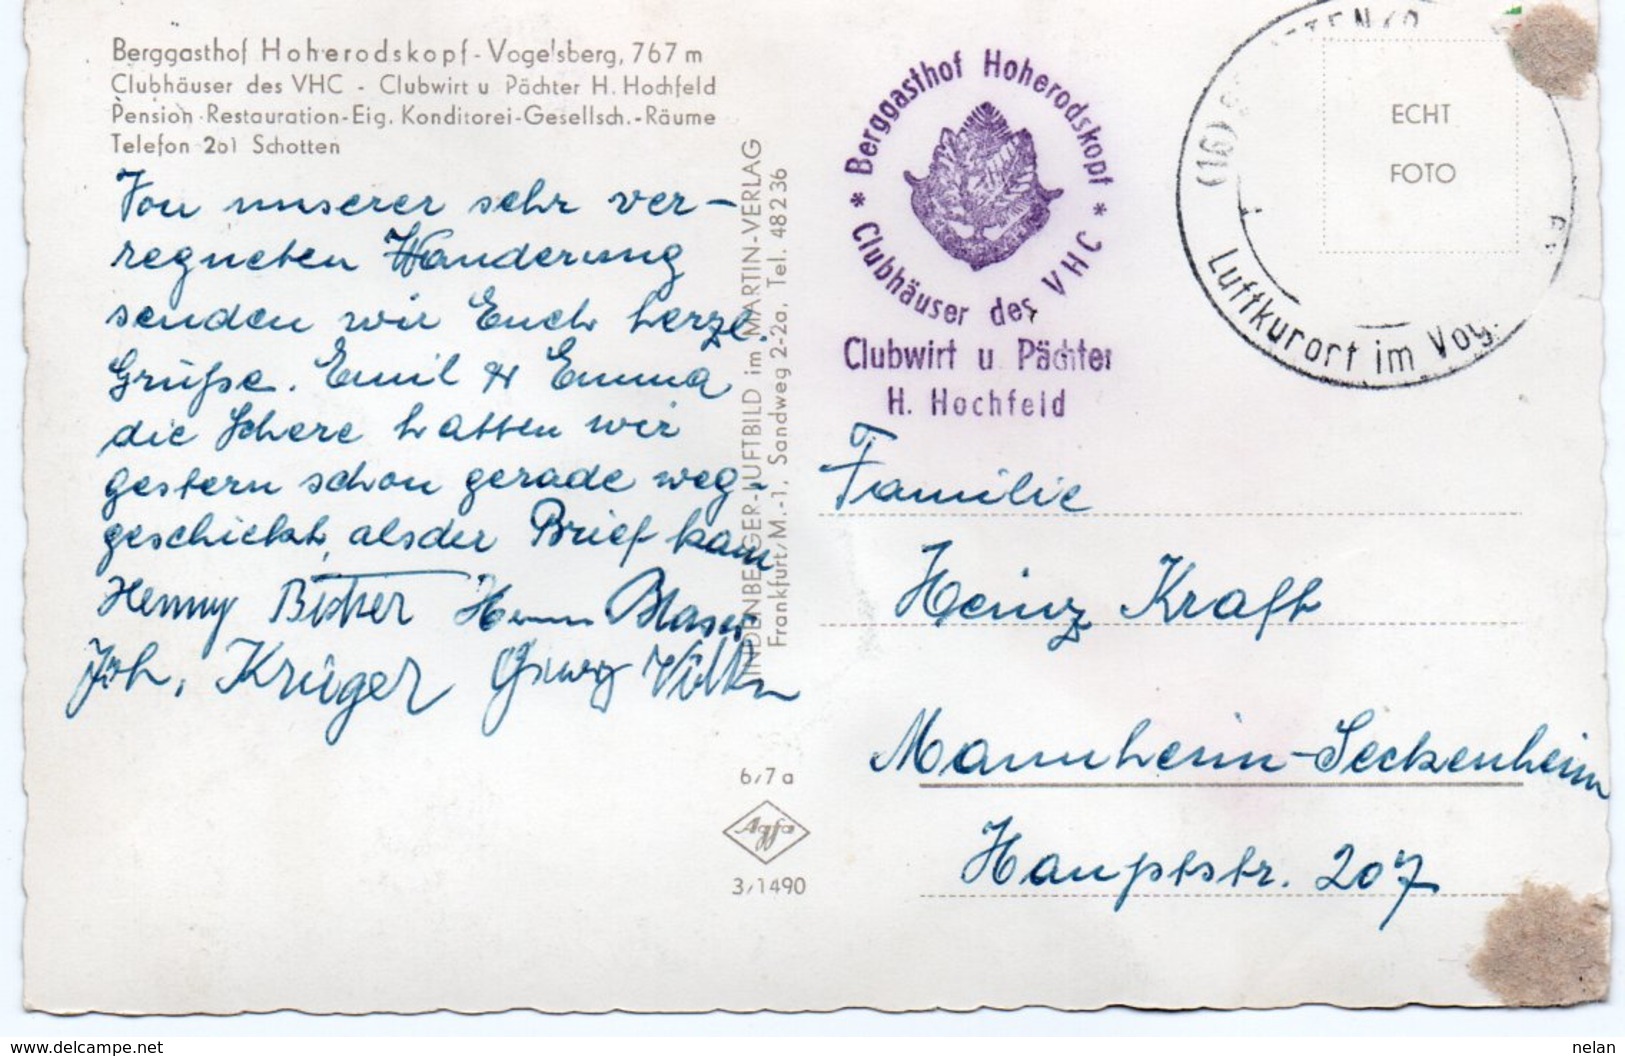 Berggasthof Hoherodskopf - Vogelsberg, 767 m
Clubhäuser des VHC - Clubwirt u Pächter H. Hochfeld
Pension-Restauration-Eig. Konditorei-Gesellsch.-Räume
Telefon 261 Schotten
Von unserer sehr ver-
regneten Wanderung
senden wir Euch herzl.
Grüße. Emil & Emma
die Schere hatten wir
gestern schon gerade weg-
geschickt, als der Brief kam
Henny
Joh. Krüger Georg
LINDENBERGER-LUFTBILD im MARTIN-VERLAG
Frankfurt/M.-1, Sandweg 2-2a, Tel. 48236
6/7 a
Agfa
3/1490
* Berggasthof Hoherodskopf *
Clubhäuser des VHC
Clubwirt u Pächter
H. Hochfeld
(16)
Luftkurort im Vog.
ECHT
FOTO
Familie
Heinz Kraft
Mannheim-Seckenheim
Hauptstr. 207
www.delcampe.net
nelan